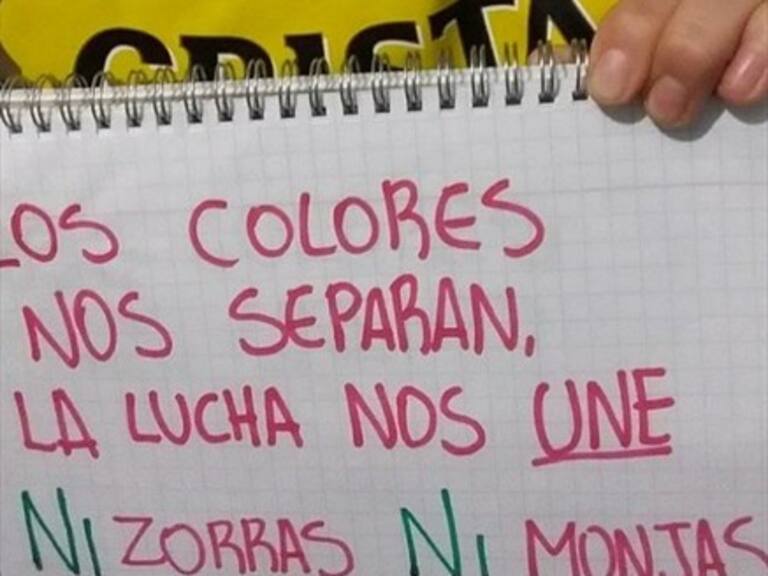 CRISTA
LOS COLORES
NOS SEPARAN,
LA LUCHA NOS UNE
Ni ZORRAS Ni MONJAS